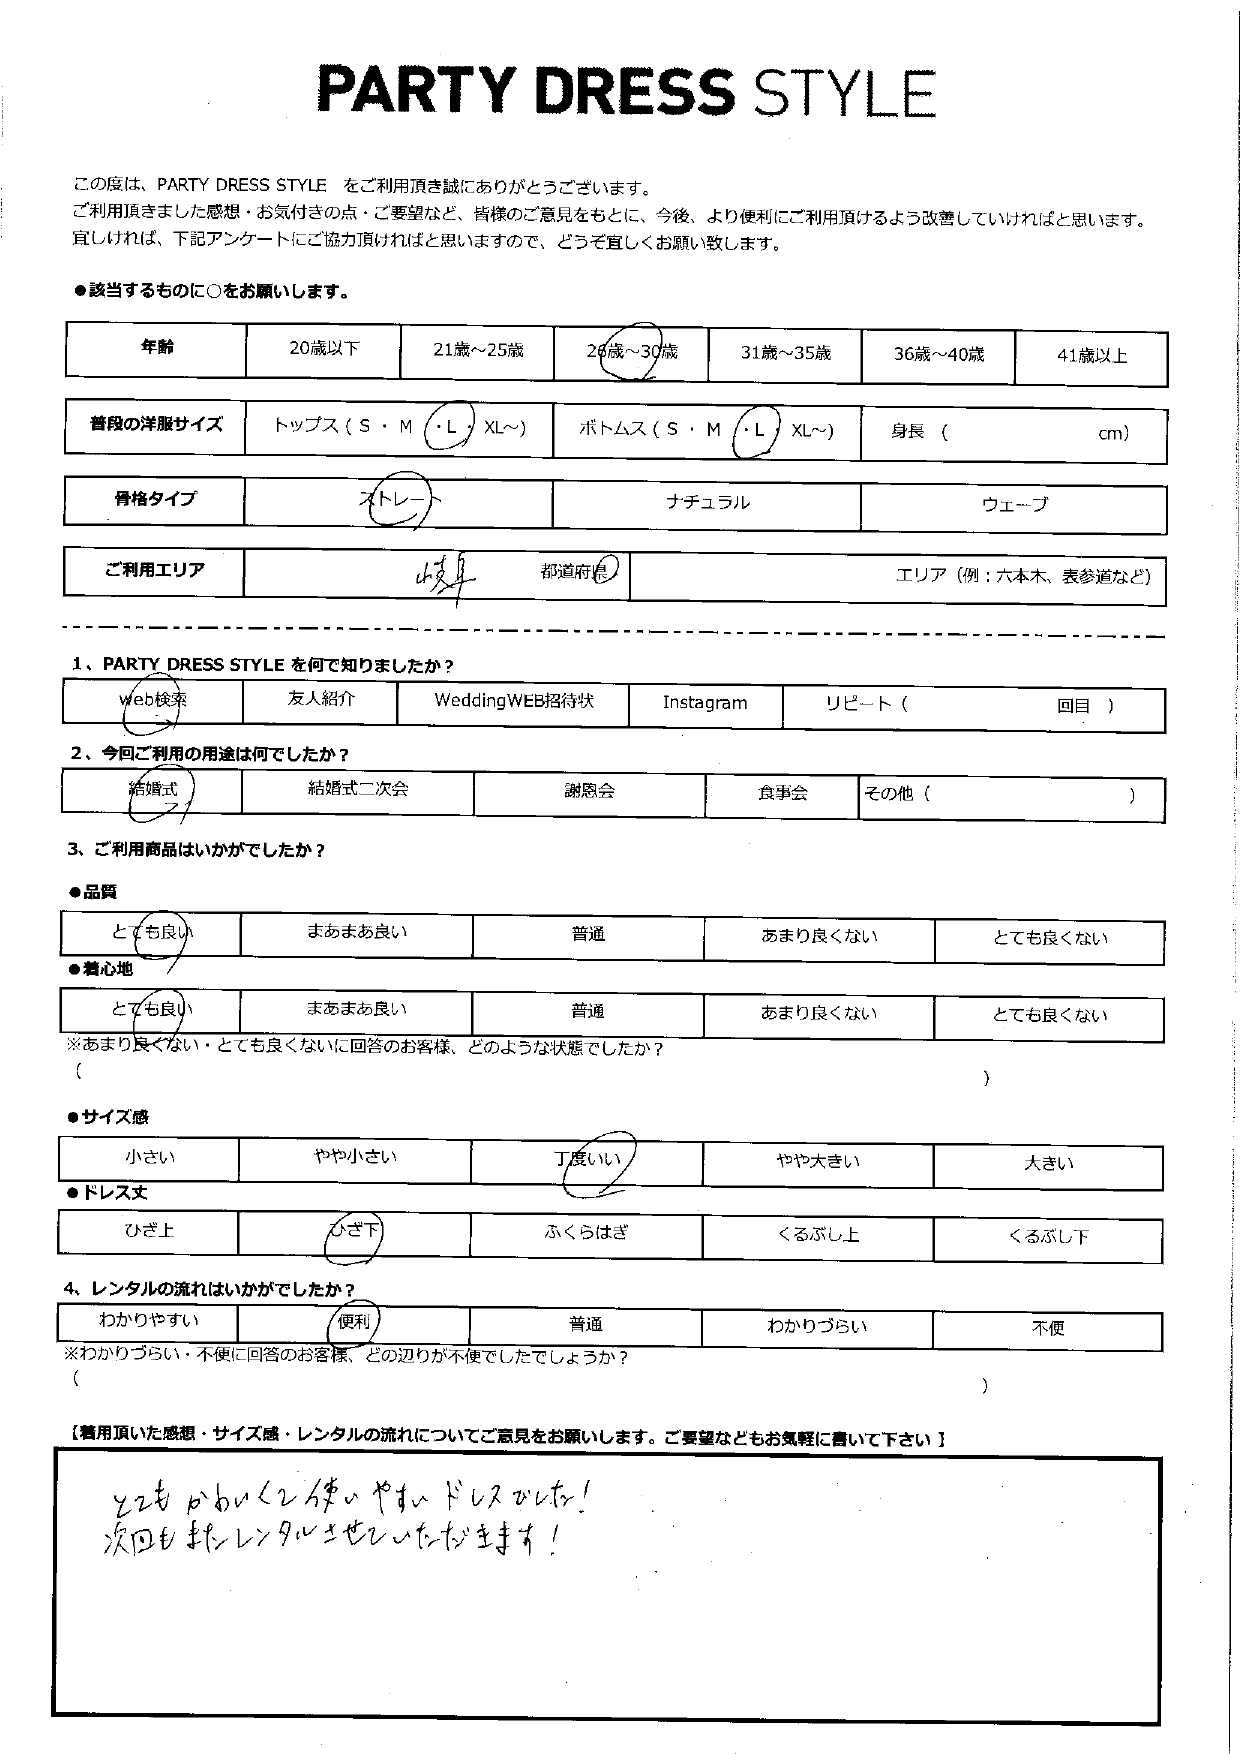 PARTY DRESS STYLE
この度は、PARTY DRESS STYLE　をご利用頂き誠にありがとうございます。
ご利用頂きました感想・お気付きの点・ご要望など、皆様のご意見をもとに、今後、より便利にご利用頂けるよう改善していければと思います。
宜しければ、下記アンケートにご協力頂ければと思いますので、どうぞ宜しくお願い致します。
●該当するものに○をお願いします。
年齢 20歳以下 21歳～25歳 26歳～30歳 31歳～35歳 36歳～40歳 41歳以上
普段の洋服サイズ トップス ( S ・ M ・ L ・ XL～) ボトムス ( S ・ M ・ L ・ XL～) 身長 ( cm)
骨格タイプ ストレート ナチュラル ウェーブ
ご利用エリア 岐阜 都道府県 エリア（例：六本木、表参道など）
1、PARTY DRESS STYLE を何で知りましたか？
web検索 友人紹介 WeddingWEB招待状 Instagram リピート ( 回目 )
2、今回ご利用の用途は何でしたか？
結婚式 結婚式二次会 謝恩会 食事会 その他 ( )
3、ご利用商品はいかがでしたか？
●品質
とても良い まあまあ良い 普通 あまり良くない とても良くない
●着心地
とても良い まあまあ良い 普通 あまり良くない とても良くない
※あまり良くない・とても良くないに回答のお客様、どのような状態でしたか？
( )
●サイズ感
小さい やや小さい 丁度いい やや大きい 大きい
●ドレス丈
ひざ上 ひざ下 ふくらはぎ くるぶし上 くるぶし下
4、レンタルの流れはいかがでしたか？
わかりやすい 便利 普通 わかりづらい 不便
※わかりづらい・不便に回答のお客様、どの辺りが不便でしたでしょうか？
( )
【着用頂いた感想・サイズ感・レンタルの流れについてご意見をお願いします。ご要望などもお気軽に書いて下さい 】
とてもかわいくて使いやすいドレスでした！
次回もまたレンタルさせていただきます！